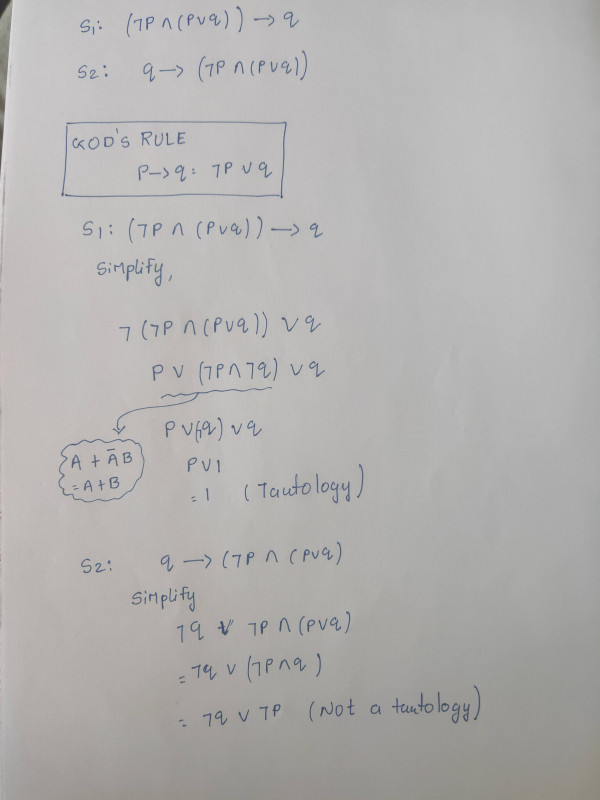 S1: (¬P ∧ (P∨q)) → q
S2: q → (¬P ∧ (P∨q))
GOD'S RULE
P→q: ¬P ∨ q
S1: (¬P ∧ (P∨q)) → q
Simplify,
¬(¬P ∧ (P∨q)) ∨ q
P ∨ (¬P∧¬q) ∨ q
A + ĀB
= A+B
P∨(¬q) ∨ q
P∨1
= 1 (Tautology)
S2: q → (¬P ∧ (P∨q)
Simplify
¬q ∨ ¬P ∧ (P∨q)
= ¬q ∨ (¬P∧q)
= ¬q ∨ ¬P (Not a tautology)